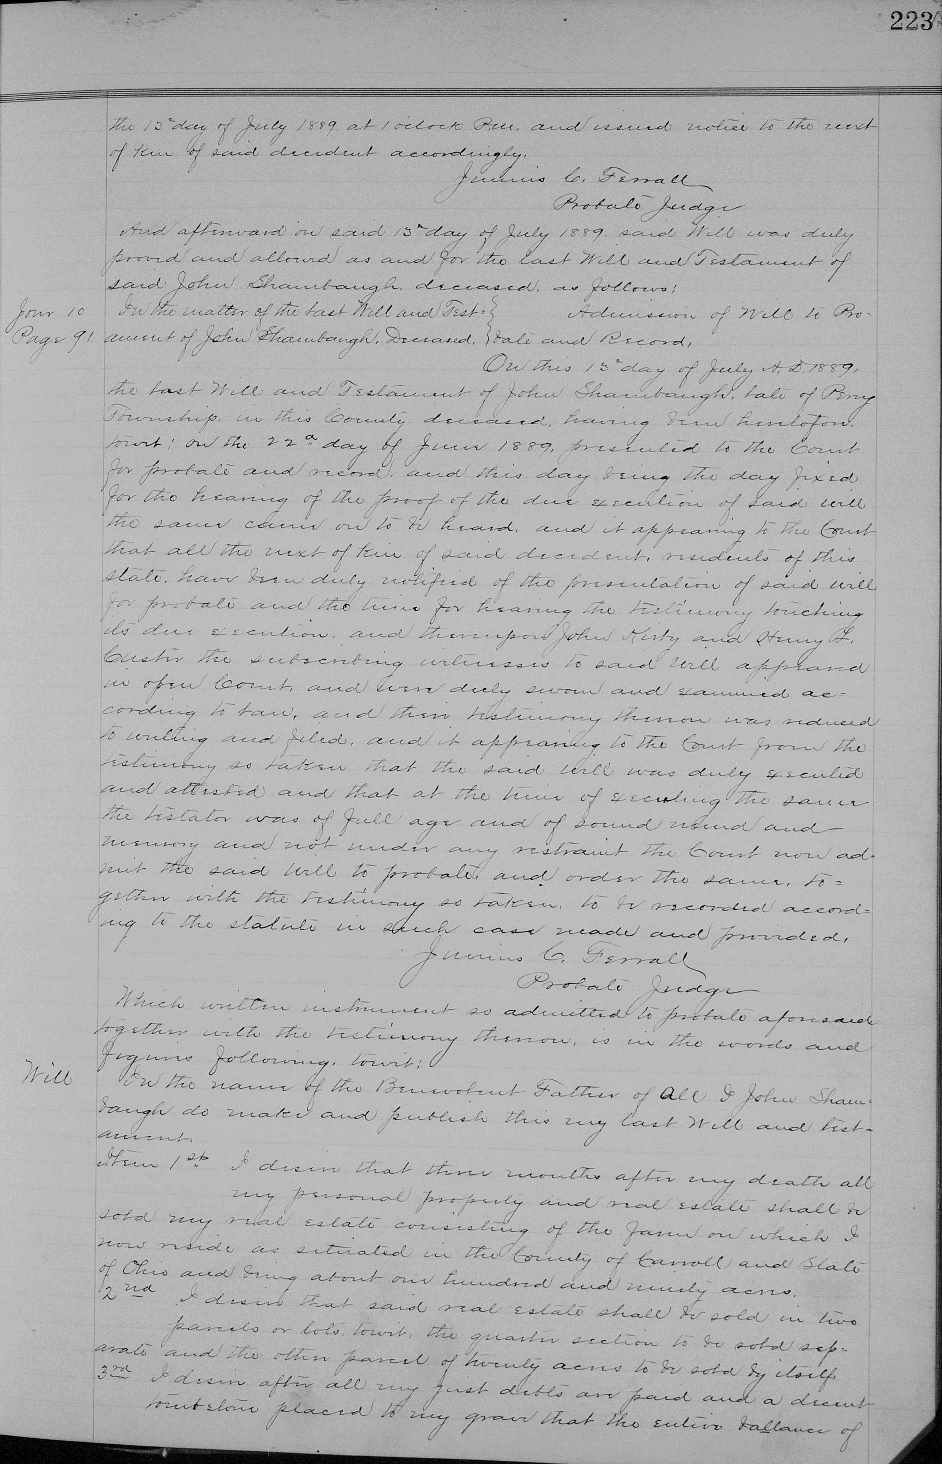 223
the 13" day of July 1889. at 1 o'clock P.M. and issued notice to the next
of kin of said decedent accordingly.
Junius C. Ferrall
Probate Judge
And afterward on said 13" day of July 1889. said Will was duly
proved and allowed as and for the last Will and Testament of
said John Shambaugh deceased. as follows:
Jour 10
Page 91
In the matter of the last Will and Test- Admission of Will to Pro-
ament of John Shambaugh. Deceased. bate and Record.
On this 13" day of July A.D. 1889.
the last Will and Testament of John Shambaugh. late of Perry
Township. in this County deceased. having been heretofore.
towit: on the 22d day of June 1889. presented to the Court
for probate and record. and this day being the day fixed
for the hearing of the proof of the due execution of said will
the same came on to be heard. and it appearing to the Court
that all the next of kin of said decedent. residents of this
state. have been duly notified of the presentation of said will
for probate and the time for hearing the testimony touching
its due execution. and thereupon John Kirby and Henry F.
Custer the subscribing witnesses to said Will appeared
in open Court. and were duly sworn and examined ac-
cording to law. and their testimony thereon was reduced
to writing and filed. and it appearing to the Court from the
testimony so taken that the said Will was duly executed
and attested and that at the time of executing the same
the testator was of full age and of sound mind and
memory and not under any restraint the Court now ad-
mit the said Will to probate. and order the same. to-
gether with the testimony so taken. to be recorded accord-
ing to the statute in such case made and provided.
Junius C. Ferrall
Probate Judge
Which written instrument so admitted to probate aforesaid
together with the testimony thereon. is in the words and
figures following. towit:
Will
In the name of the Benevolent Father of All I John Sham-
baugh do make and publish this my last Will and test-
ament.
Item 1st I desire that three months after my death all
my personal property and real estate shall be
sold my real estate consisting of the farm on which I
now reside as situated in the County of Carroll and State
of Ohio and being about one hundred and ninety acres.
2nd I desire that said real estate shall be sold in two
parcels or lots. towit. the quarter section to be sold sep-
arate and the other parcel of twenty acres to be sold by itself.
3rd I desire after all my just debts are paid and a decent
tombstone placed to my grave that the entire ballance of